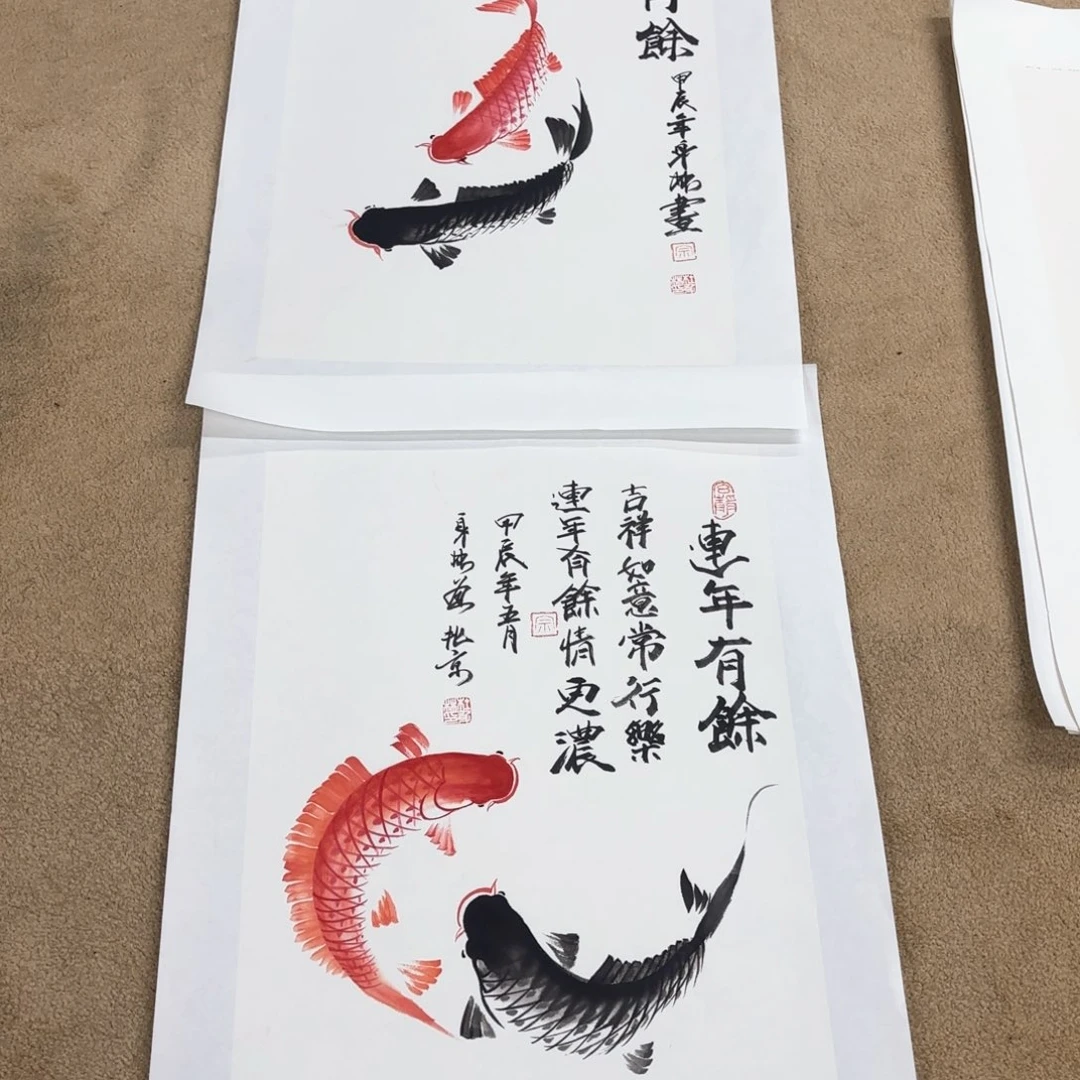 餘
甲辰年
畫
連年有餘
吉祥如意常行樂
連年有餘情更濃
甲辰年五月
於京
宗